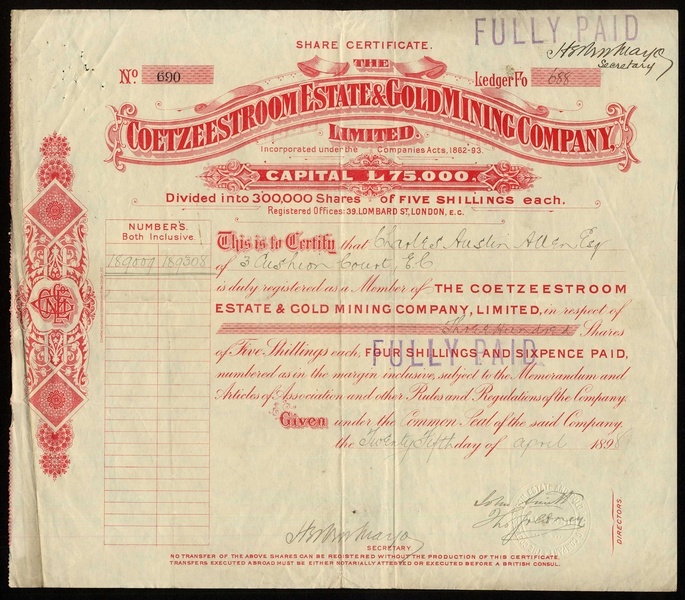 FULLY PAID
SHARE CERTIFICATE.
Secretary
THE
No 690
Ledger Fo 688
COETZEESTROOM ESTATE & GOLD MINING COMPANY,
LIMITED.
Incorporated under the Companies Acts, 1862-93.
CAPITAL £75,000.
Divided into 300,000 Shares of FIVE SHILLINGS each.
Registered Offices: 39, LOMBARD ST, LONDON, E.C.
NUMBERS.
Both Inclusive.
189009 189308
This is to Certify that Charles Austin Allen Esq
of 3 Cushion Court, E.C
is duly registered as a Member of THE COETZEESTROOM
ESTATE & GOLD MINING COMPANY, LIMITED, in respect of
Three Hundred Shares
of Five Shillings each, FOUR SHILLINGS AND SIXPENCE PAID,
FULLY PAID
numbered as in the margin inclusive, subject to the Memorandum and
Articles of Association and other Rules and Regulations of the Company.
Given under the Common Seal of the said Company.
the Twenty Fifth day of April 1898
DIRECTORS.
SECRETARY
NO TRANSFER OF THE ABOVE SHARES CAN BE REGISTERED WITHOUT THE PRODUCTION OF THIS CERTIFICATE.
TRANSFERS EXECUTED ABROAD MUST BE EITHER NOTARIALLY ATTESTED OR EXECUTED BEFORE A BRITISH CONSUL.